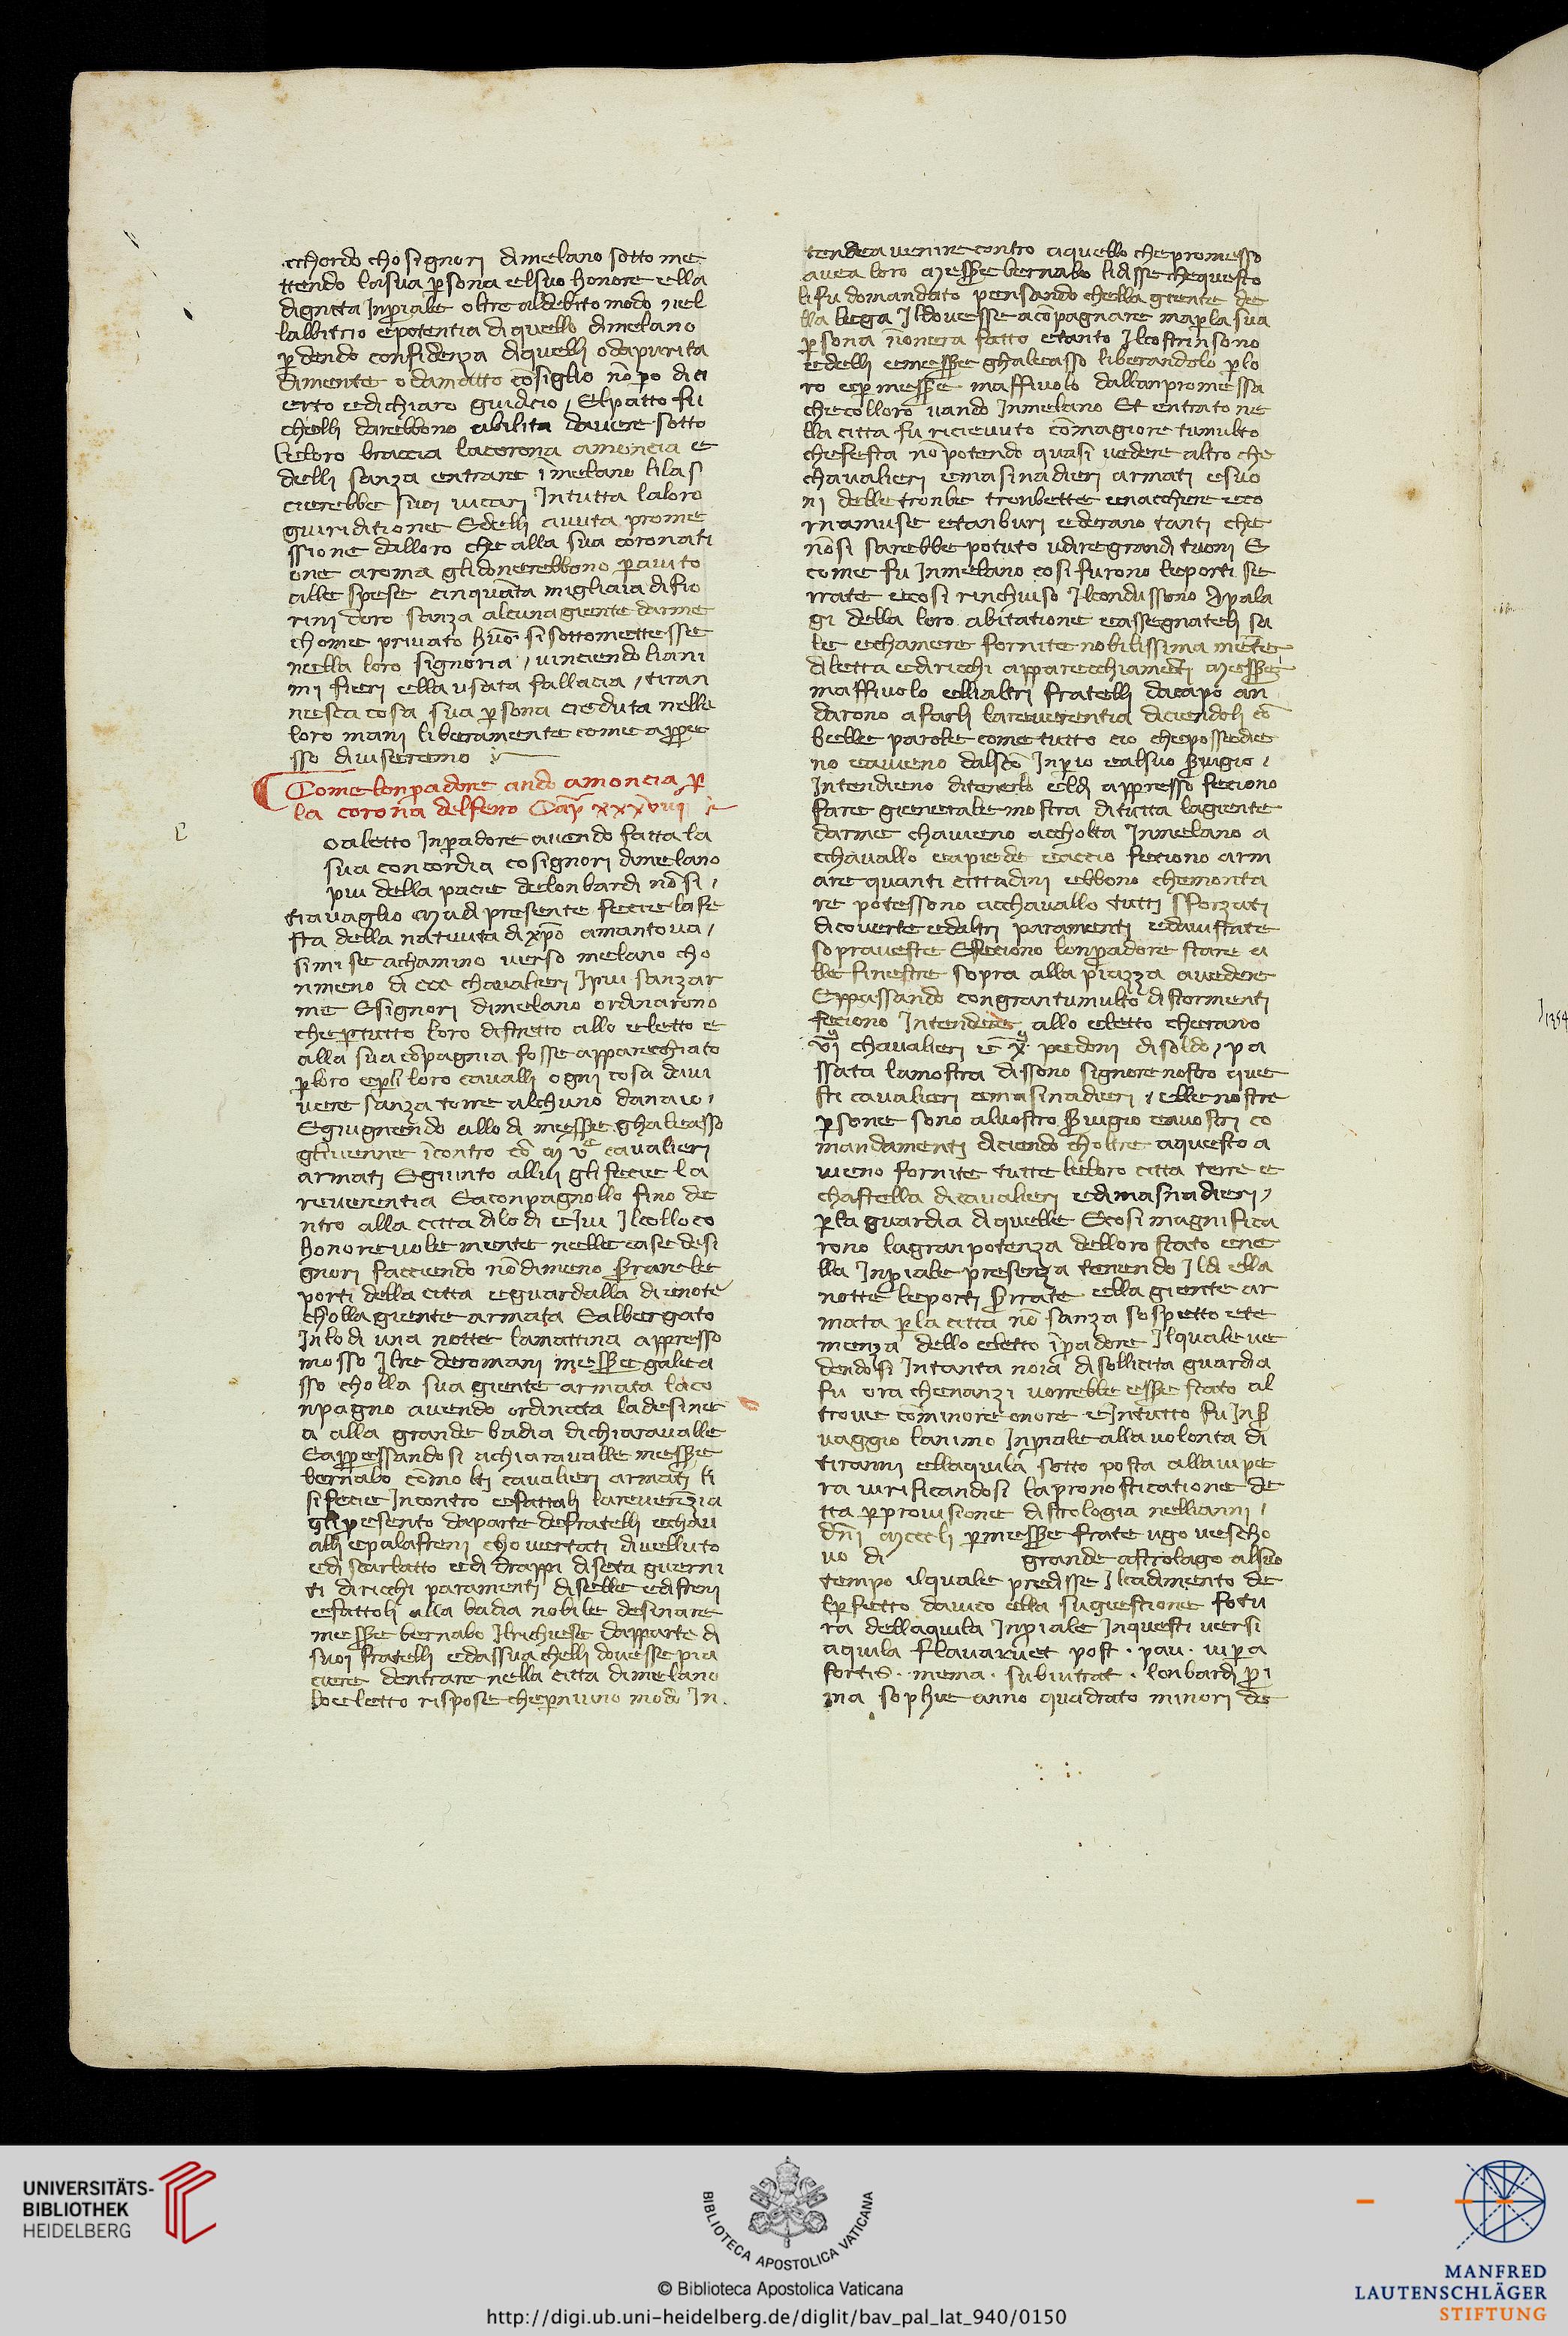 cchordo cho signori dimelano sotto me
ttendo lasua p̱sona elsuo honore ella
dignita Inp̱iale oltre aldebito modo nel
lalbitrio epotentia di quello dimelano
p̱dendo confidenza diquelli odapurita
dimente odamatto cōsiglio nō po di ci
erto edichiaro guidicio / Elpatto fu
chelli darebbono abilita davere sotto
leloro braccia lacorona amoncia e
delli sanza entrare īmelano lilas
cierebbe suoi vicari Intutta laloro
guiriditione Edelli avuta prome
ssione dalloro che alla sua coronati
one aroma glidonerebbono p̱ aiuto
alle spese cinquāta migliaia difio
rini doro sanza alcuna giente darme
chome privato huō si sottomettesse
nella loro signoria / vinciendo liani
mi fieri ella usata fallacia / tiran
nesca cosa sua p̱sona creduta nelle
loro mani liberamente come appre
sso diviseremo
Come lonpadore ando amoncia p̱
la corona delferro Cap̄ xxxviii
oaletto Inp̱adore avendo fatta la
sua concordia cosignori dimelano
piu della pacie delonbardi nō si /
travaglio Ma di presente fecie lafe
sta della nativita di xp̄o amantova /
simise achamino verso melano cho
nmeno di ccc chavalieri Ipiu sanzar
me Esignori dimelano ordinarono
chep̱tutto loro distretto allo eletto e
alla sua cōpagnia fosse apparecchiato
p̱loro ep̱li loro cavalli ogni cosa davi
vere sanza torre alchuno danaio /
Egiugnendo allodi messe ghaleasso
glivenne īcontro cō M vͨ cavalieri
armati Egiunto allui gli fecie la
reverentia Eaconpagnollo fino de
ntro alla citta dilodi eIvi Ilcolloco
honorevole mente nelle case desi
gnori facciendo nōdimeno serrare le
porti della citta eguardalla dinotte
cholla giente armata Ealbergato
Inlodi una notte lamattina appresso
mosso Ilre deromani messe galea
sso cholla sua giente armata laco
npagno avendo ordinata ladesine
a alla grande badia dichiaravalle
Eapp̱essandosi achiaravalle messe
bernabo cōmolti cavalieri armati li
sifecie Incontro efattali lareverēzia
gli p̱esento daparte defratelli echav
alli epalafreni chovertati divelluto
edi scarlatto edi drappi diseta guerni
ti diricchi paramenti diselle edifreni
efattoli alla badia nobile desinare
messe bernabo Ilrichiese dapparte di
suoi fratelli edassua chelli dovesse pia
ciere dentrare nella citta dimelano
Loeletto rispose chep̱niuno modo In
tendea venire contro aquello chepromesso
avea loro Messe bernabo lidisse chequesto
lifu domandato pensando chella giente de
lla lega Ildovesse acōpagnare map̱la sua
p̱sona nōnera fatto etanto Ilcostrinsono
edelli emesse ghaleasso liberandolo p̱lo
ro ep̱messe maffiuolo dallanpromessa
checolloro nando Inmelano Et entrato ne
lla citta fu ricievuto cōmagiore tumulto
chefesta nō potendo quasi vedere altro che
chavalieri emasinadieri armati esuo
ni delle tronbe tronbette enacchere eco
rnamuse etanburi ederano tanti che
nōsi sarebbe potuto udiregrandi tuoni E
come fu Inmelano cosi furono leporti se
rrate ecosi rinchiuso Ilcondussono Apala
gi della loro abitatione eassegnateli sa
le echamere fornite nobilissima mēte
diletta ediricchi apparecchiamēti Messe
maffiuolo elli altri fratelli dacapo an
darono afarli lareverentia diciendoli cō
belle parole come tutto cio chepossedie
no eavieno dalscō Inp̱io ealsuo s̱vigio /
Intendieno ditenerlo eldi appresso feciono
fare gienerale mostra ditutta lagiente
darme chavieno accholta Inmelano a
cchavallo eapiede eaccio feciono arm
are quanti cittadini ebbono chemonta
re potessono acchavallo tutti sforzati
dicoverte edaltri paramenti edavistate
sopraveste Efeciono lonp̱adore stare a
lle finestre sopra alla piazza avedere
Eppassando congrantumulto distormenti
feciono Intendere allo eletto cherano
vi̅ chavalieri e x̄ pedoni disoldo / pa
ssata lamostra dissono signore nostro que
sti cavalieri emasinadieri / elle nostre
p̱sone sono alvostro s̱vigio eavostri co
mandamenti diciendo cholтre aquesto a
vieno fornite tutte leloro citta terre e
chastella dicavalieri edimasnadieri /
p̱la guardia diquelle Ecosi magnifica
rono lagran potenza delloro stato ene
lla Inp̱iale presenza tenendo Ildi ella
notte leporti s̱rate ella giente ar
mata p̱la citta nō sanza sospetto ete
menza dello eletto īp̱adore Ilquale ve
dendosi Intanta noia disollicita guardia
fu ora chenanzi vorrebbe esse stato al
trove cōminore onore eIntutto fu Ins̱
vaggio lanimo Inp̱iale alla volonta di
tiranni ellaquila sotto posta allavipe
ra virificandosi lapronosticatione de
tta p̱provisione distrologia nellanni /
dn̄i Mcccli p̱messe frate ugo veschо
vo di grande astrolago alsuo
tempo ilquale predisse Ilcadimento de
lp̱fetto davico ella sugiestione fotu
ra dellaquila Inp̱iale Inquesti versi
aquila flavaruet post · pav · vip̱a
fortis · mema · subintrat · lonbardi p̱i
ma sophie anno quadrato minori de
1354
UNIVERSITÄTS-
BIBLIOTHEK
HEIDELBERG
BIBLIOTECA APOSTOLICA VATICANA
© Biblioteca Apostolica Vaticana
http://digi.ub.uni-heidelberg.de/diglit/bav_pal_lat_940/0150
MANFRED
LAUTENSCHLÄGER
STIFTUNG